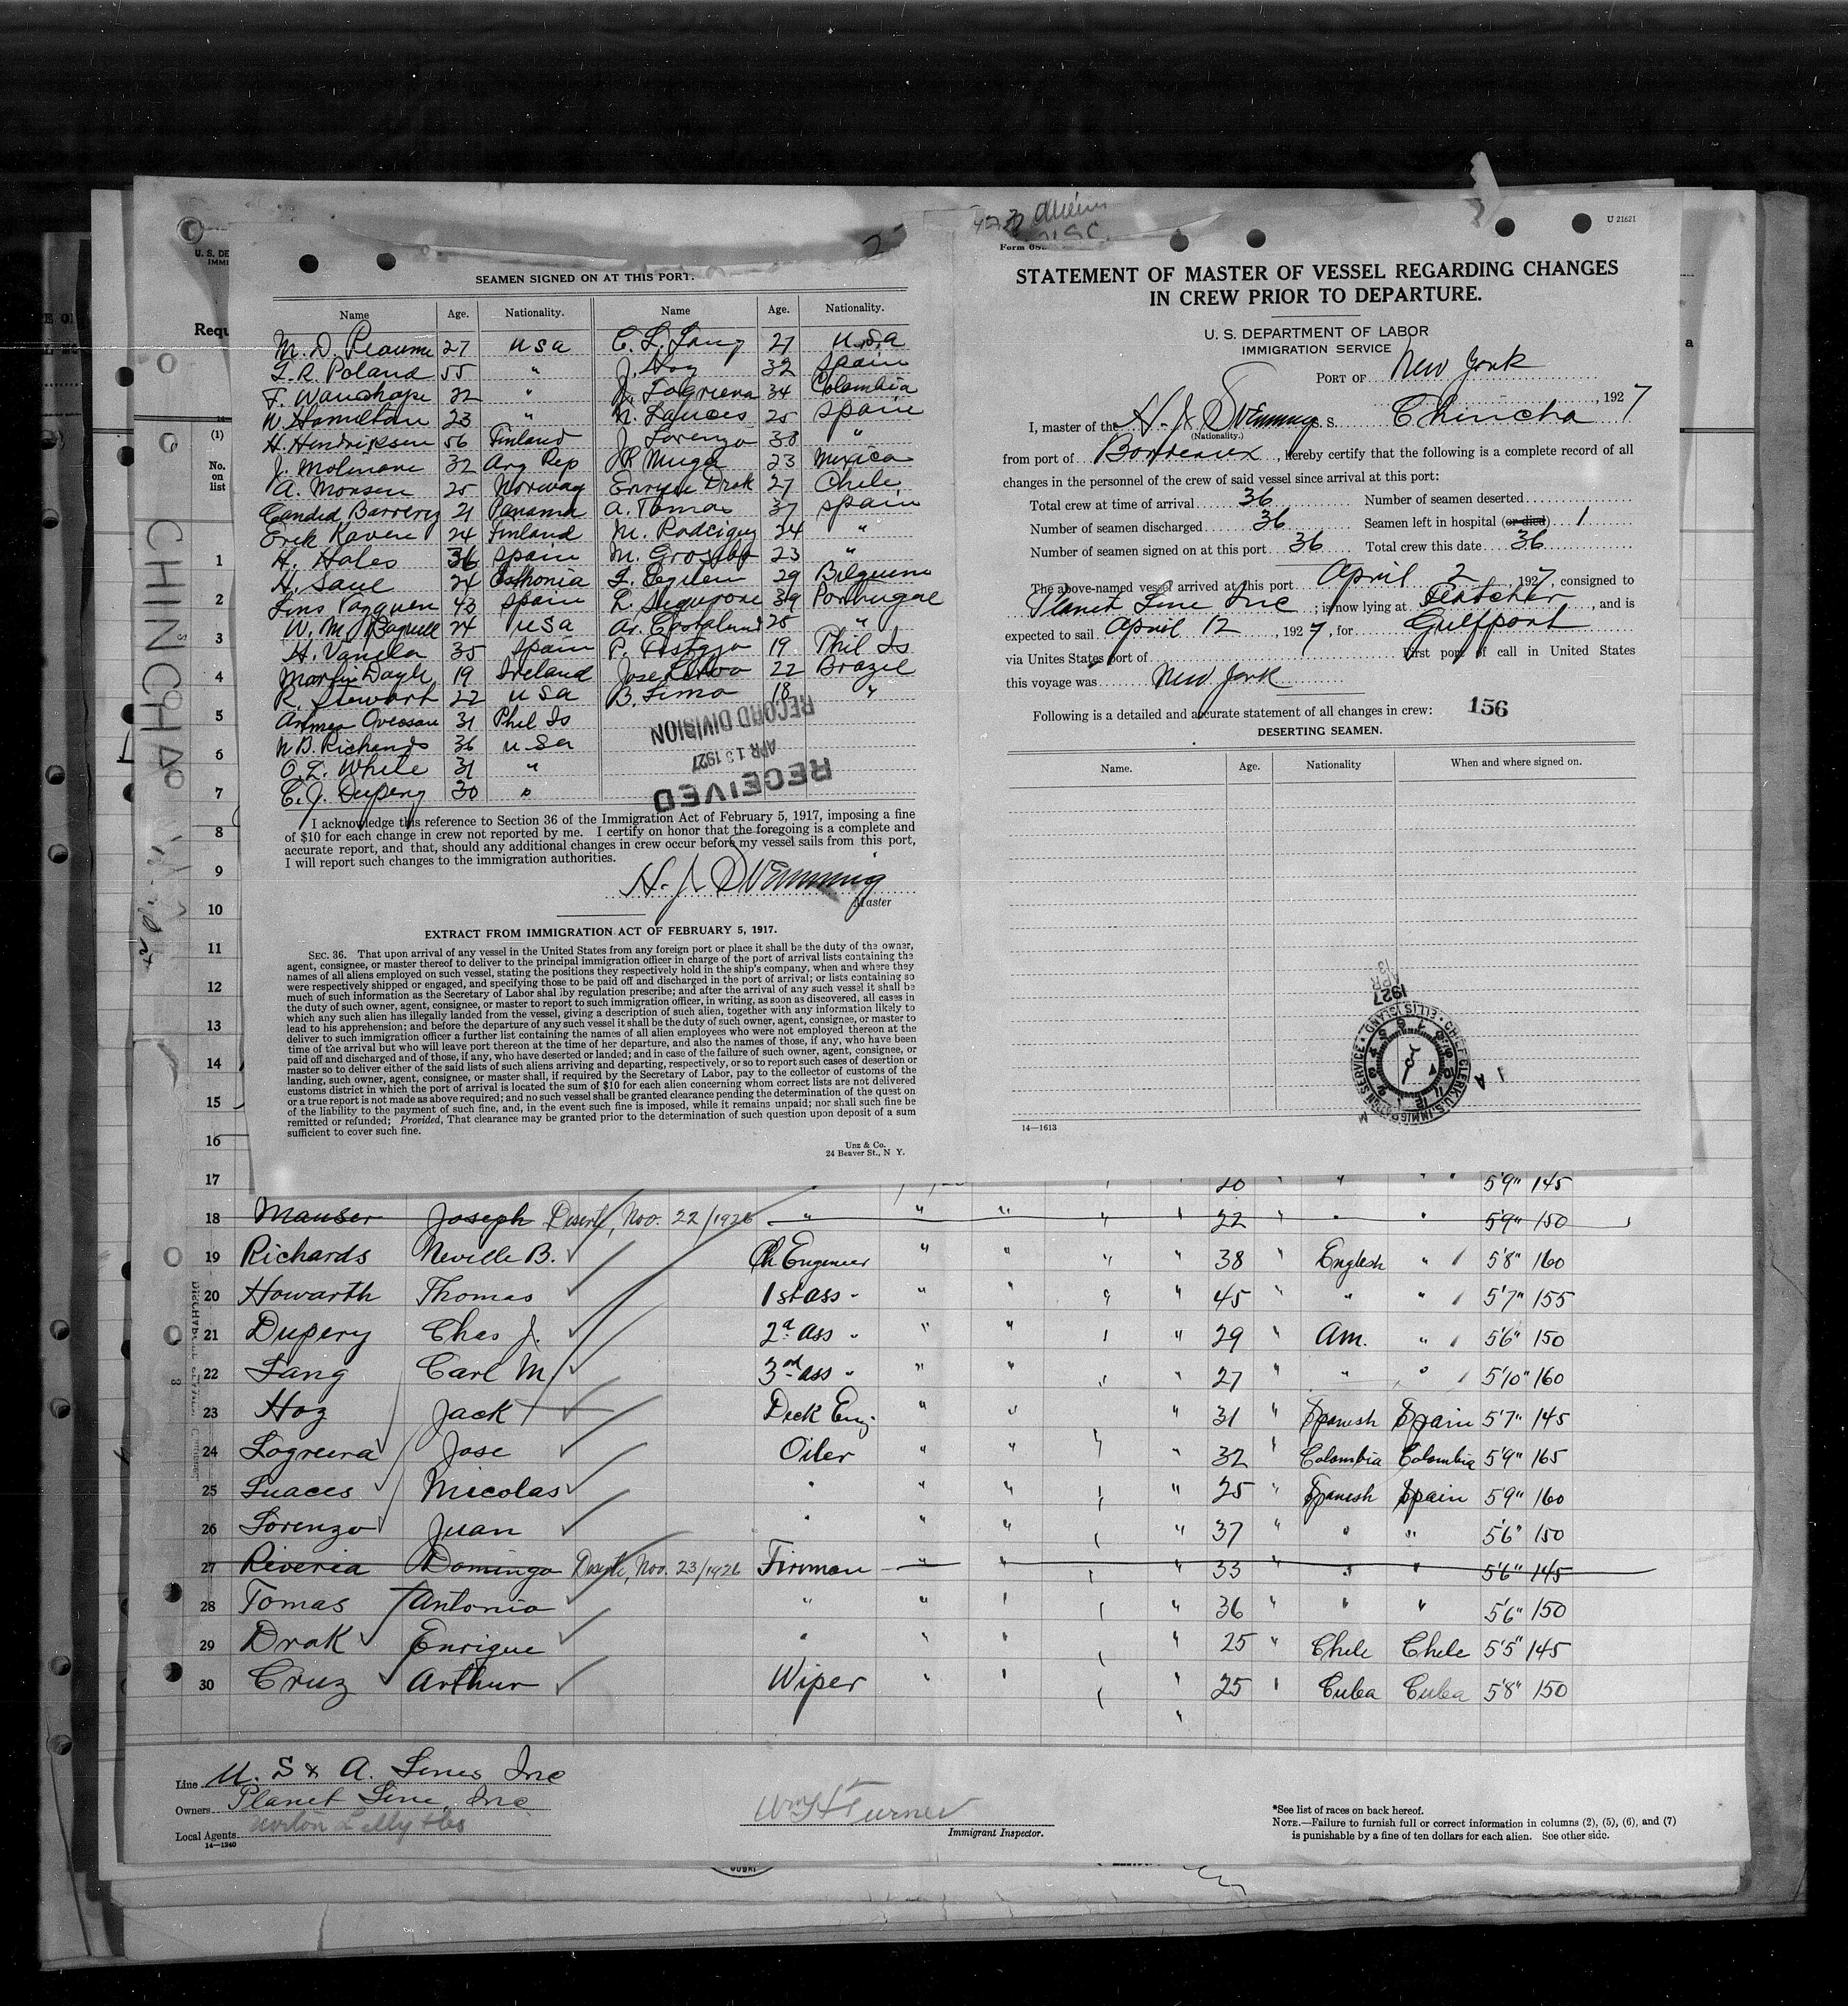 U 21621
SEAMEN SIGNED ON AT THIS PORT.
Name Age. Nationality. Name Age. Nationality.
M. D. Reaume 27 USA C. L. Lang 27 U.S.A
L. R. Poland 55 " J. Hoz 32 Spain
F. Wauchope 22 " J. Lagreera 34 Colombia
W. Hamilton 23 " N. Luaces 25 Spain
H. Hendriksen 56 Finland J. Lorenzo 38 "
J. Molinare 32 Arg Rep 23 Mexico
A. Monsen 25 Norway Enrique Drak 27 Chile
Candid Barrery 21 Panama A. Tomas 37 Spain
Erik Kaven 24 Finland M. Rodriguez 24 "
H. Hales 36 Spain M. 23 "
H. Saul 24 Esthonia 29 Belguim
43 Spain 39 Portugal
W. M. Bagwell 24 USA 25 "
H. Vanela 35 Spain P. 19 Phil Is
Martin Doyle 19 Ireland Jose 22 Brazil
R. Stewart 22 USA B. Lima 18 "
31 Phil Is
N B. Richards 36 USA
O. L. White 31 "
C. J. Dupery 30 "
RECEIVED
APR 13 1927
RECORD DIVISION
I acknowledge this reference to Section 36 of the Immigration Act of February 5, 1917, imposing a fine
of $10 for each change in crew not reported by me. I certify on honor that the foregoing is a complete and
accurate report, and that, should any additional changes in crew occur before my vessel sails from this port,
I will report such changes to the immigration authorities.
H. J.
Master
EXTRACT FROM IMMIGRATION ACT OF FEBRUARY 5, 1917.
SEC. 36. That upon arrival of any vessel in the United States from any foreign port or place it shall be the duty of the owner,
agent, consignee, or master thereof to deliver to the principal immigration officer in charge of the port of arrival lists containing the
names of all aliens employed on such vessel, stating the positions they respectively hold in the ship's company, when and where they
were respectively shipped or engaged, and specifying those to be paid off and discharged in the port of arrival; or lists containing so
much of such information as the Secretary of Labor shal lby regulation prescribe; and after the arrival of any such vessel it shall be
the duty of such owner, agent, consignee, or master to report to such immigration officer, in writing, as soon as discovered, all cases in
which any such alien has illegally landed from the vessel, giving a description of such alien, together with any information likely to
lead to his apprehension; and before the departure of any such vessel it shall be the duty of such owner, agent, consignee, or master to
deliver to such immigration officer a further list containing the names of all alien employees who were not employed thereon at the
time of the arrival but who will leave port thereon at the time of her departure, and also the names of those, if any, who have been
paid off and discharged and of those, if any, who have deserted or landed; and in case of the failure of such owner, agent, consignee, or
master so to deliver either of the said lists of such aliens arriving and departing, respectively, or so to report such cases of desertion or
landing, such owner, agent, consignee, or master shall, if required by the Secretary of Labor, pay to the collector of customs of the
customs district in which the port of arrival is located the sum of $10 for each alien concerning whom correct lists are not delivered
or a true report is not made as above required; and no such vessel shall be granted clearance pending the determination of the quest on
of the liability to the payment of such fine, and, in the event such fine is imposed, while it remains unpaid; nor shall such fine be
remitted or refunded; Provided, That clearance may be granted prior to the determination of such question upon deposit of a sum
sufficient to cover such fine.
Unz & Co.
24 Beaver St., N Y.
STATEMENT OF MASTER OF VESSEL REGARDING CHANGES
IN CREW PRIOR TO DEPARTURE.
U. S. DEPARTMENT OF LABOR
IMMIGRATION SERVICE
PORT OF New York
, 1927
I, master of the H. J. S. S. Chincha
(Nationality.)
from port of Bordeaux, hereby certify that the following is a complete record of all
changes in the personnel of the crew of said vessel since arrival at this port:
Total crew at time of arrival 36 Number of seamen deserted
Number of seamen discharged 36 Seamen left in hospital (or died) 1
Number of seamen signed on at this port 36 Total crew this date 36
The above-named vessel arrived at this port April 2, 1927, consigned to
Planet Line Inc; is now lying at Fletcher, and is
expected to sail April 12, 1927, for Gulfport
via Unites States port of First port of call in United States
this voyage was New York
Following is a detailed and accurate statement of all changes in crew: 156
DESERTING SEAMEN.
Name. Age. Nationality When and where signed on.
CHIEF CLERK, U.S. IMMIGRATION SERVICE ELLIS ISLAND
APR 13 1927
14—1613
CHINCHA
Requ
(1)
No.
on
list
1
2
3
4
5
6
7
8
9
10
11
12
13
14
15
16
17 20 " " " 5'9" 145
18 Mauser Joseph Deserted, Nov. 22/1926 " " " " " 22 " " 5'9" 150
19 Richards Neville B. Ch Engineer " " " " 38 " English " 5'8" 160
20 Howarth Thomas 1st ass " " " " " 45 " " " 5'7" 155
21 Dupery Chas J. 2d ass " " " " " 29 " Am. " 5'6" 150
22 Lang Carl M 3rd ass " " " " " 27 " " " 5'10" 160
23 Hoz Jack Deck Eng. " " " 31 " Spanish Spain 5'7" 145
24 Lagreera Jose Oiler " " " " 32 " Colombia Colombia 5'9" 165
25 Luaces Nicolas " " " " " 25 " Spanish Spain 5'9" 160
26 Lorenzo Juan " " " " " 37 " " " 5'6" 150
27 Riveria Domingo Deserted, Nov. 23/1926 Fireman " " " " 33 " " " 5'6" 145
28 Tomas Antonio " " " " " 36 " " " 5'6" 150
29 Drak Enrique " " " " " 25 " Chile Chile 5'5" 145
30 Cruz Arthur Wiper " " " " 25 " Cuba Cuba 5'8" 150
Line U. S & A. Lines Inc
Owners Planet Line, Inc
Local Agents Norton Lilly & Co
14—1240
Wm H Turner
Immigrant Inspector.
*See list of races on back hereof.
NOTE.—Failure to furnish full or correct information in columns (2), (5), (6), and (7)
is punishable by a fine of ten dollars for each alien. See other side.